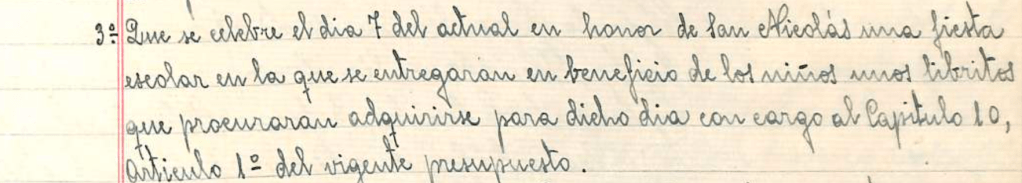 3º Que se celebre el dia 7 del actual en honor de San Nicolás una fiesta
escolar en la que se entregarán en beneficio de los niños unos libritos
que procuraran adquirirse para dicho dia con cargo al Capitulo 10,
Articulo 1º del vigente presupuesto.